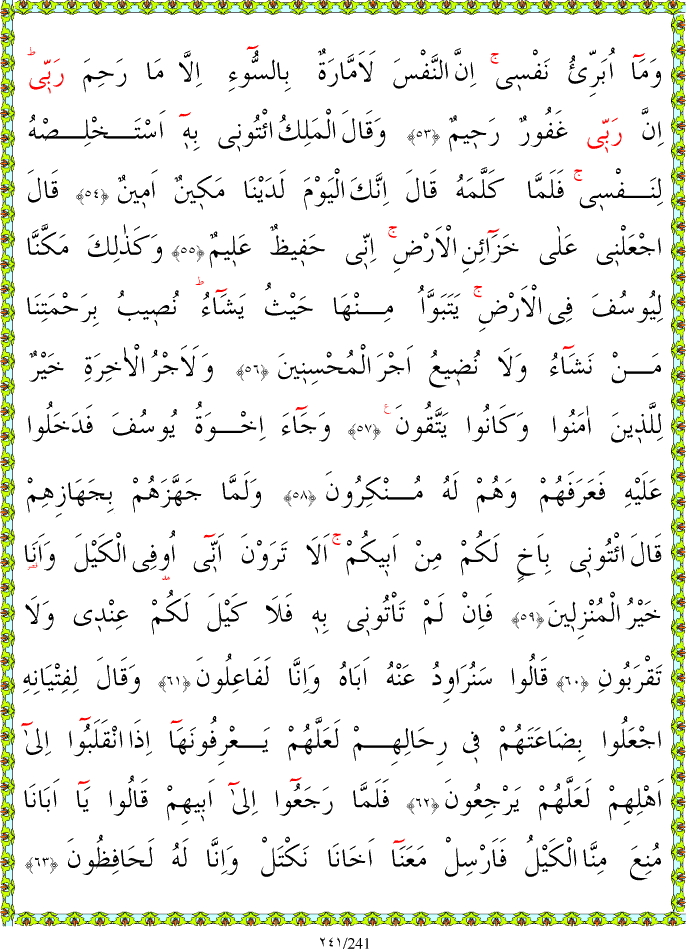 وَمَٓا اُبَرِّئُ نَفْسٖىۚ اِنَّ النَّفْسَ لَاَمَّارَةٌ بِالسُّٓوءِ اِلَّا مَا رَحِمَ رَبّٖىؕ
اِنَّ رَبّٖى غَفُورٌ رَحٖيمٌ ﴿٥٣﴾ وَقَالَ الْمَلِكُ ائْتُونٖى بِهٖٓ اَسْتَخْلِصْهُ
لِنَفْسٖىۚ فَلَمَّا كَلَّمَهُ قَالَ اِنَّكَ الْيَوْمَ لَدَيْنَا مَكٖينٌ اَمٖينٌ ﴿٥٤﴾ قَالَ
اجْعَلْنٖى عَلٰى خَزَٓائِنِ الْاَرْضِۚ اِنّٖى حَفٖيظٌ عَلٖيمٌ ﴿٥٥﴾ وَكَذٰلِكَ مَكَّنَّا
لِيُوسُفَ فِى الْاَرْضِۚ يَتَبَوَّاُ مِنْهَا حَيْثُ يَشَٓاءُؕ نُصٖيبُ بِرَحْمَتِنَا
مَنْ نَشَٓاءُ وَلَا نُضٖيعُ اَجْرَ الْمُحْسِنٖينَ ﴿٥٦﴾ وَلَاَجْرُ الْاٰخِرَةِ خَيْرٌ
لِلَّذٖينَ اٰمَنُوا وَكَانُوا يَتَّقُونَ ﴿٥٧﴾ۧ وَجَٓاءَ اِخْوَةُ يُوسُفَ فَدَخَلُوا
عَلَيْهِ فَعَرَفَهُمْ وَهُمْ لَهُ مُنْكِرُونَ ﴿٥٨﴾ وَلَمَّا جَهَّزَهُمْ بِجَهَازِهِمْ
قَالَ ائْتُونٖى بِاَخٍ لَكُمْ مِنْ اَبٖيكُمْۚ اَلَا تَرَوْنَ اَنّٖٓى اُوفِى الْكَيْلَ وَاَنَا۬
خَيْرُ الْمُنْزِلٖينَ ﴿٥٩﴾ فَاِنْ لَمْ تَاْتُونٖى بِهٖ فَلَا كَيْلَ لَكُمْ عِنْدٖى وَلَا
تَقْرَبُونِ ﴿٦٠﴾ قَالُوا سَنُرَاوِدُ عَنْهُ اَبَاهُ وَاِنَّا لَفَاعِلُونَ ﴿٦١﴾ وَقَالَ لِفِتْيَانِهِ
اجْعَلُوا بِضَاعَتَهُمْ فٖى رِحَالِهِمْ لَعَلَّهُمْ يَعْرِفُونَهَٓا اِذَا انْقَلَبُٓوا اِلٰٓى
اَهْلِهِمْ لَعَلَّهُمْ يَرْجِعُونَ ﴿٦٢﴾ فَلَمَّا رَجَعُٓوا اِلٰٓى اَبٖيهِمْ قَالُوا يَٓا اَبَانَا
مُنِعَ مِنَّا الْكَيْلُ فَاَرْسِلْ مَعَنَٓا اَخَانَا نَكْتَلْ وَاِنَّا لَهُ لَحَافِظُونَ ﴿٦٣﴾
٢٤١/241